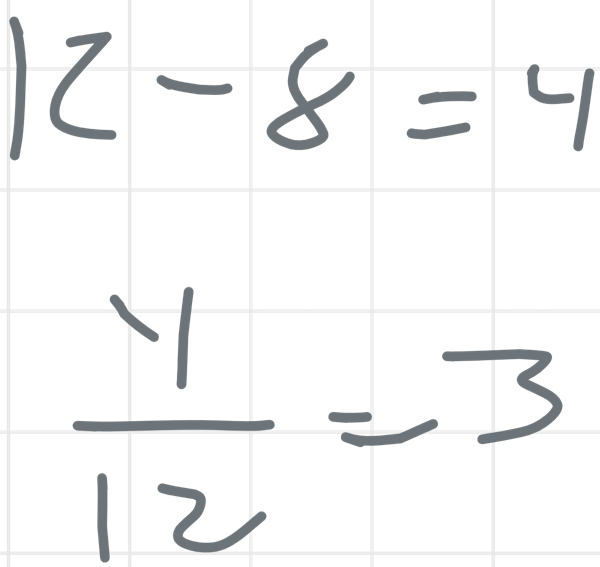 12 - 8 = 4
4/12 = 3